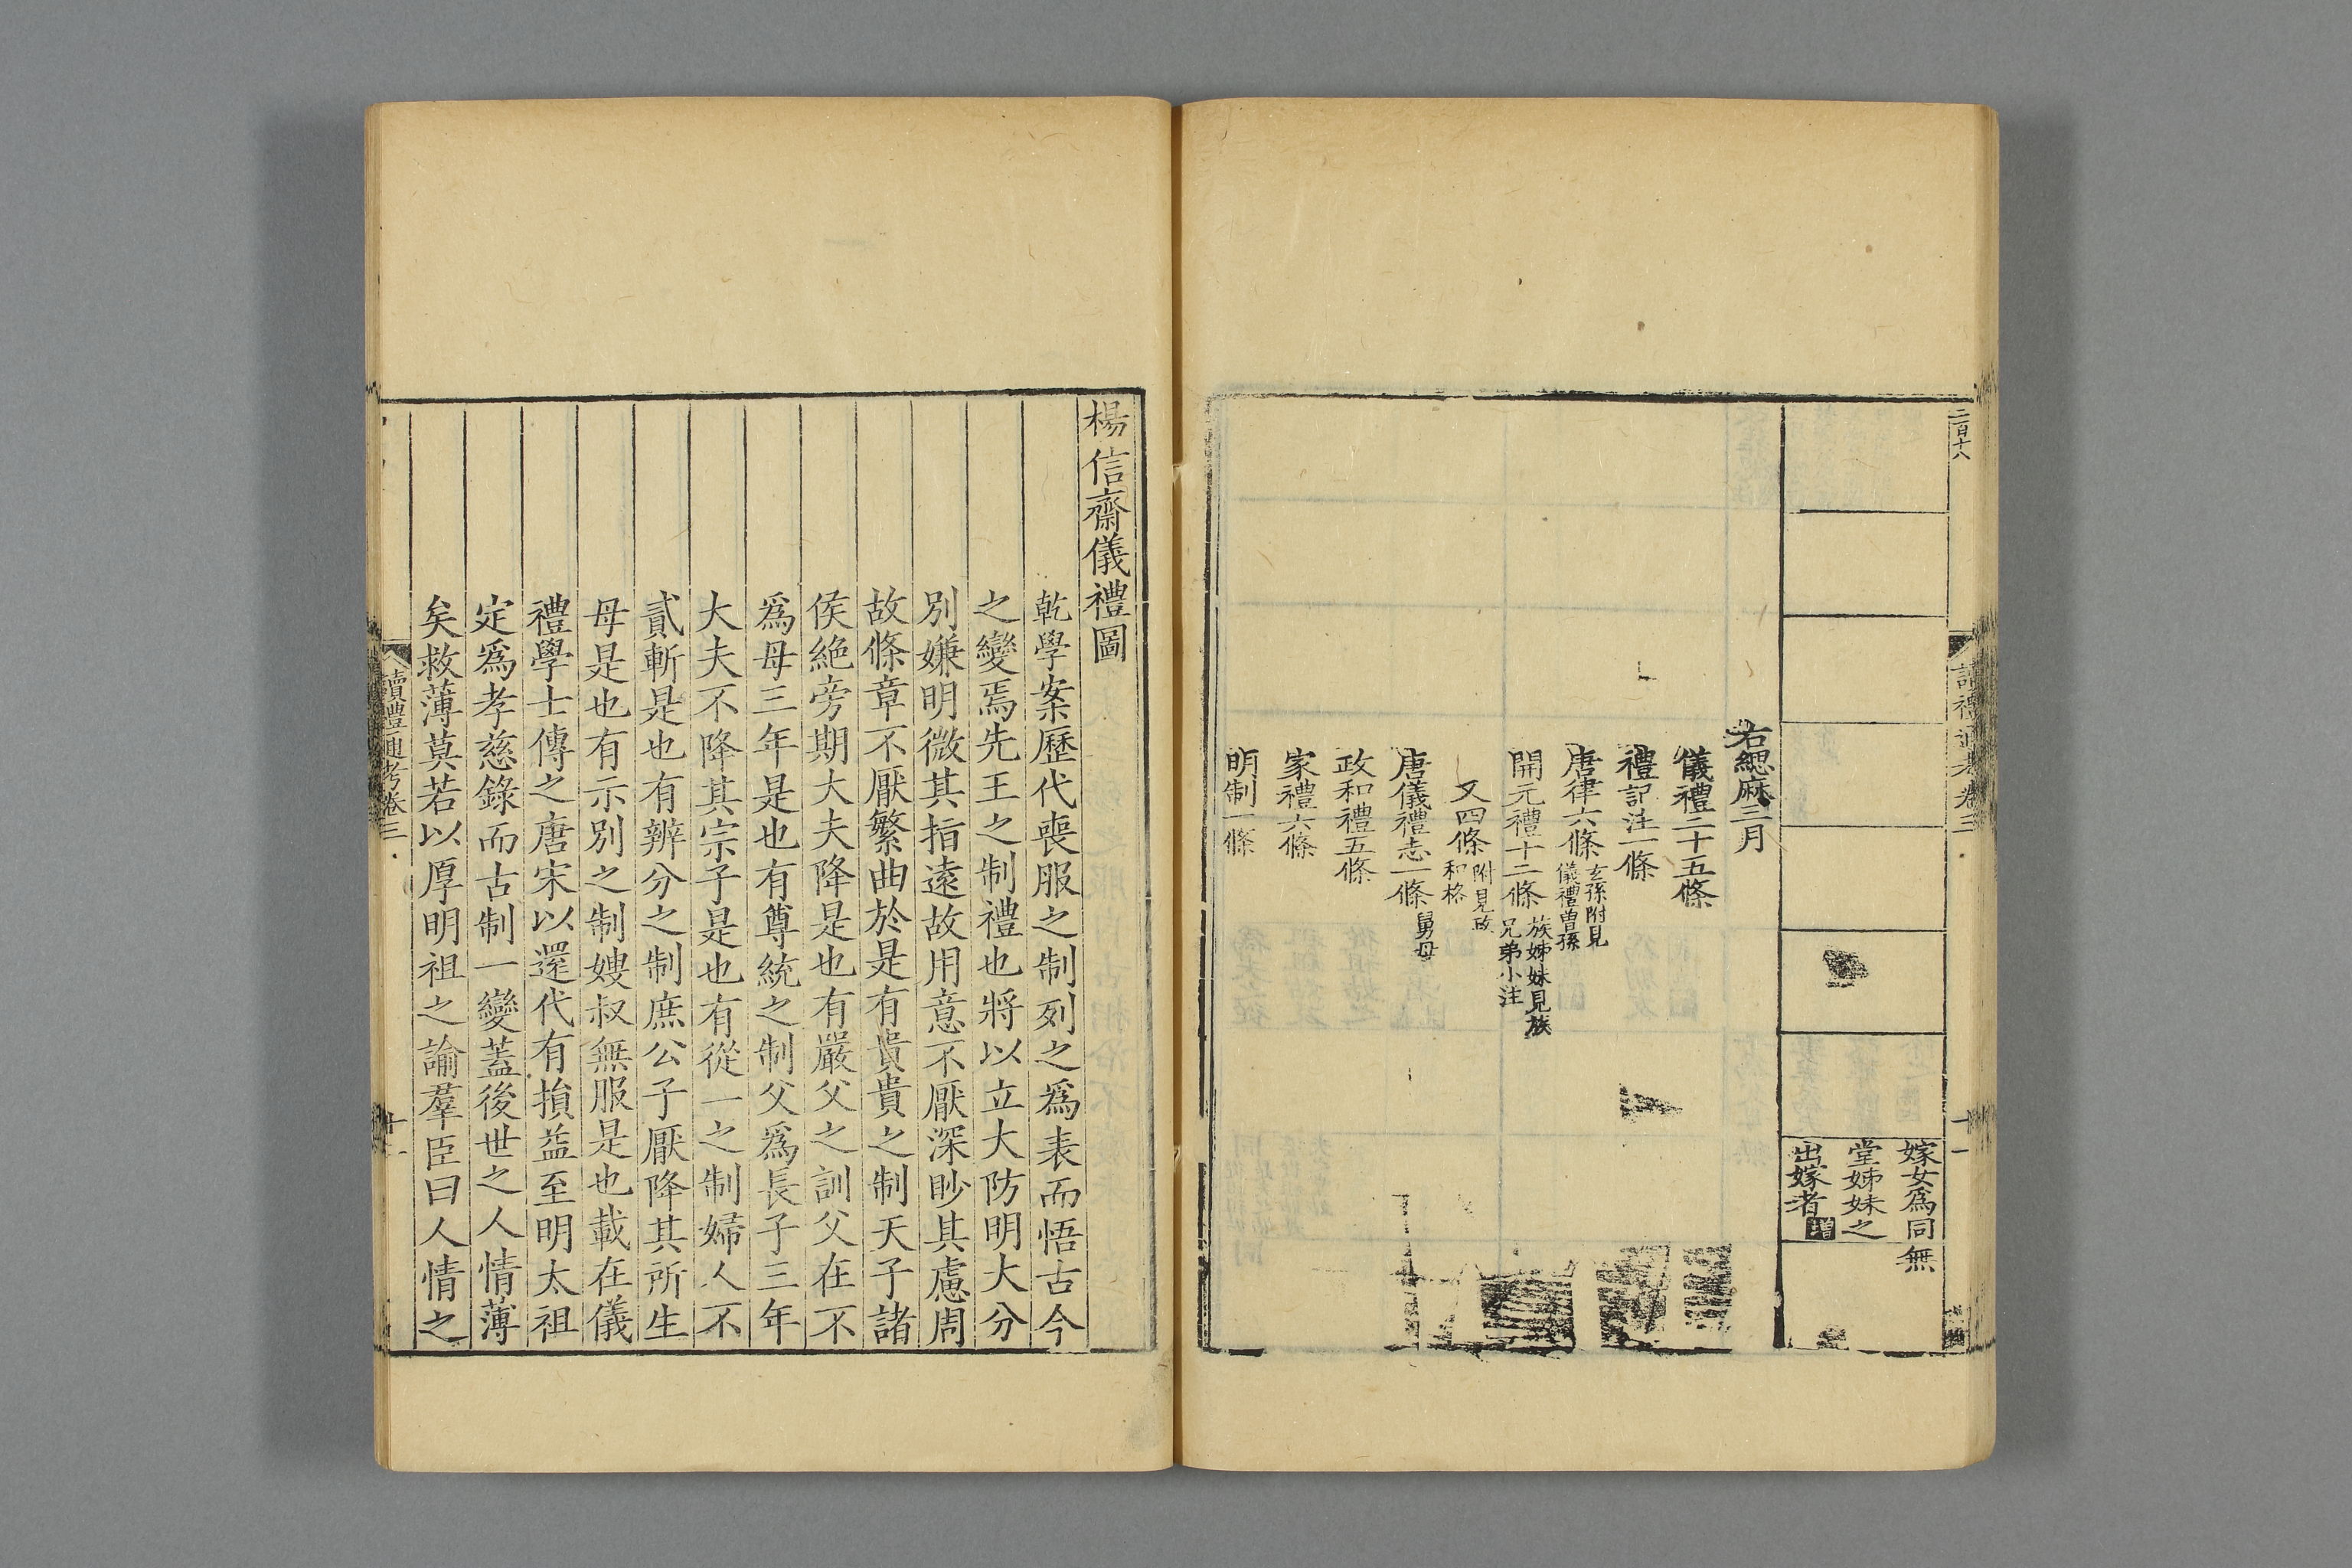 二百十八
讀禮通考卷三
十一
嫁女爲同
堂姊妹之
出嫁者增
無
右緦麻三月
儀禮二十五條
禮記注一條
唐律六條玄孫附見
儀禮曾孫
開元禮十二條族姊妹見族
兄弟小注
又四條附見政
和格
唐儀禮志一條舅母
政和禮五條
家禮六條
明制一條
楊信齋儀禮圖
乾學案歷代喪服之制列之爲表而悟古今
之變焉先王之制禮也將以立大防明大分
別嫌明微其指遠故用意不厭深眇其慮周
故條章不厭繁曲於是有貴貴之制天子諸
侯絶旁期大夫降是也有嚴父之訓父在不
爲母三年是也有尊統之制父爲長子三年
大夫不降其宗子是也有從一之制婦人不
貳斬是也有辨分之制庶公子厭降其所生
母是也有示別之制嫂叔無服是也載在儀
禮學士傳之唐宋以還代有損益至明太祖
定爲孝慈錄而古制一變蓋後世之人情薄
矣救薄莫若以厚明祖之諭羣臣曰人情之
讀禮通考卷三